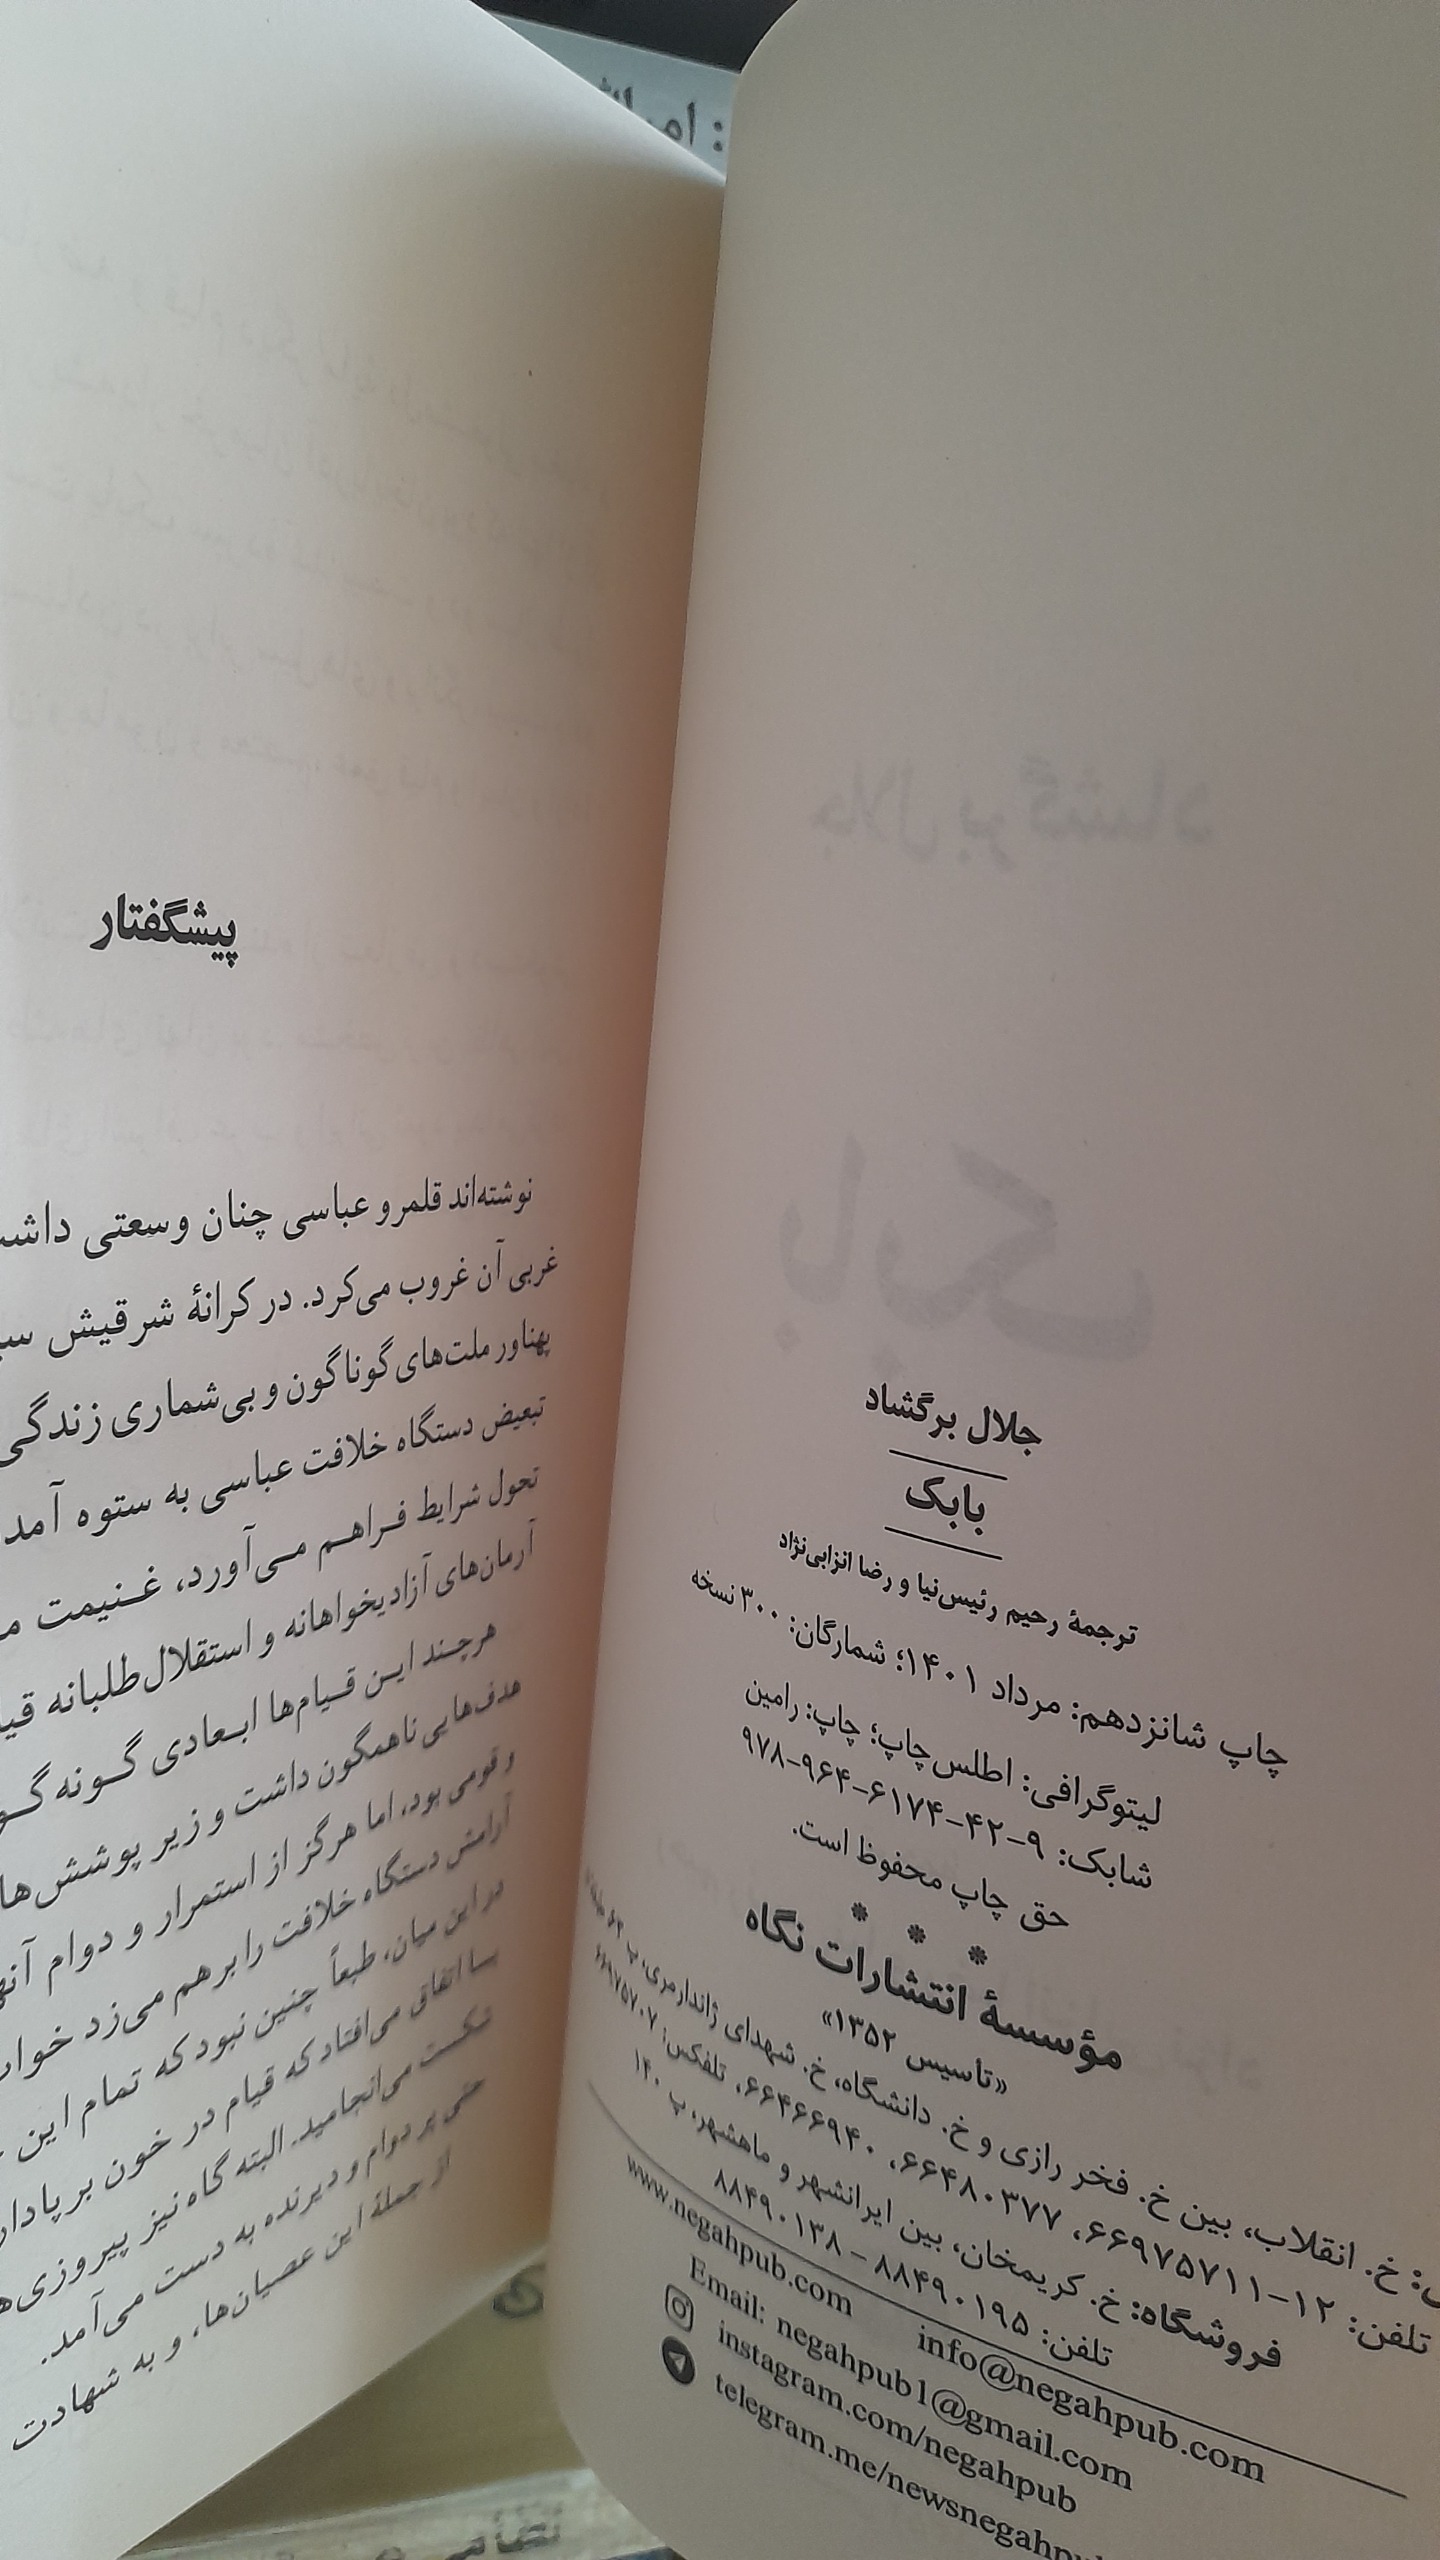 جلال برگشاد
بابک
ترجمهٔ رحیم رئیس‌نیا و رضا انزابی‌نژاد
چاپ شانزدهم: مرداد ۱۴۰۱؛ شمارگان: ۳۰۰ نسخه
لیتوگرافی: اطلس‌چاپ؛ چاپ: رامین
شابک: ۹-۴۲-۶۱۷۴-۹۶۴-۹۷۸
حق چاپ محفوظ است.
* * *
مؤسسهٔ انتشارات نگاه
«تاسیس ۱۳۵۲»
خ. انقلاب، بین خ. فخر رازی و خ. دانشگاه، خ. شهدای ژاندارمری، پ
تلفن: ۱۲-۶۶۹۷۵۷۱۱، ۶۶۴۸۰۳۷۷، ۶۶۴۶۶۹۴۰، تلفکس: ۶۶۹۷۵۷۰۷
فروشگاه: خ. کریمخان، بین ایرانشهر و ماهشهر، پ ۱۴۰
تلفن: ۸۸۴۹۰۱۹۵ - ۸۸۴۹۰۱۳۸
www.negahpub.com info@negahpub.com
Email: negahpub1@gmail.com
instagram.com/negahpub
telegram.me/newsnegahpub
پیشگفتار
نوشته‌اند قلمرو عباسی چنان وسعتی
غربی آن غروب می‌کرد. در کرانهٔ شرقیش
پهناور ملت‌های گوناگون و بی‌شماری زندگی
تبعیض دستگاه خلافت عباسی به ستوه
تحول شرایط فراهم می‌آورد، غنیمت
آرمان‌های آزادیخواهانه و استقلال‌طلبانه
هرچند این قیام‌ها ابعادی
هدف‌هایی ناهمگون داشت و زیر پوشش‌ها
و قومی بود، اما هرگز از استمرار و دوام
آرامش دستگاه خلافت را برهم می‌زد
در این میان، طبعاً چنین نبود که تمام این
بسا اتفاق می‌افتاد که قیام در خون
شکست می‌انجامید. البته گاه نیز
حتی پر دوام و دیرنده به دست می‌آمد.
از جملهٔ این عصیان‌ها، و به شهادت